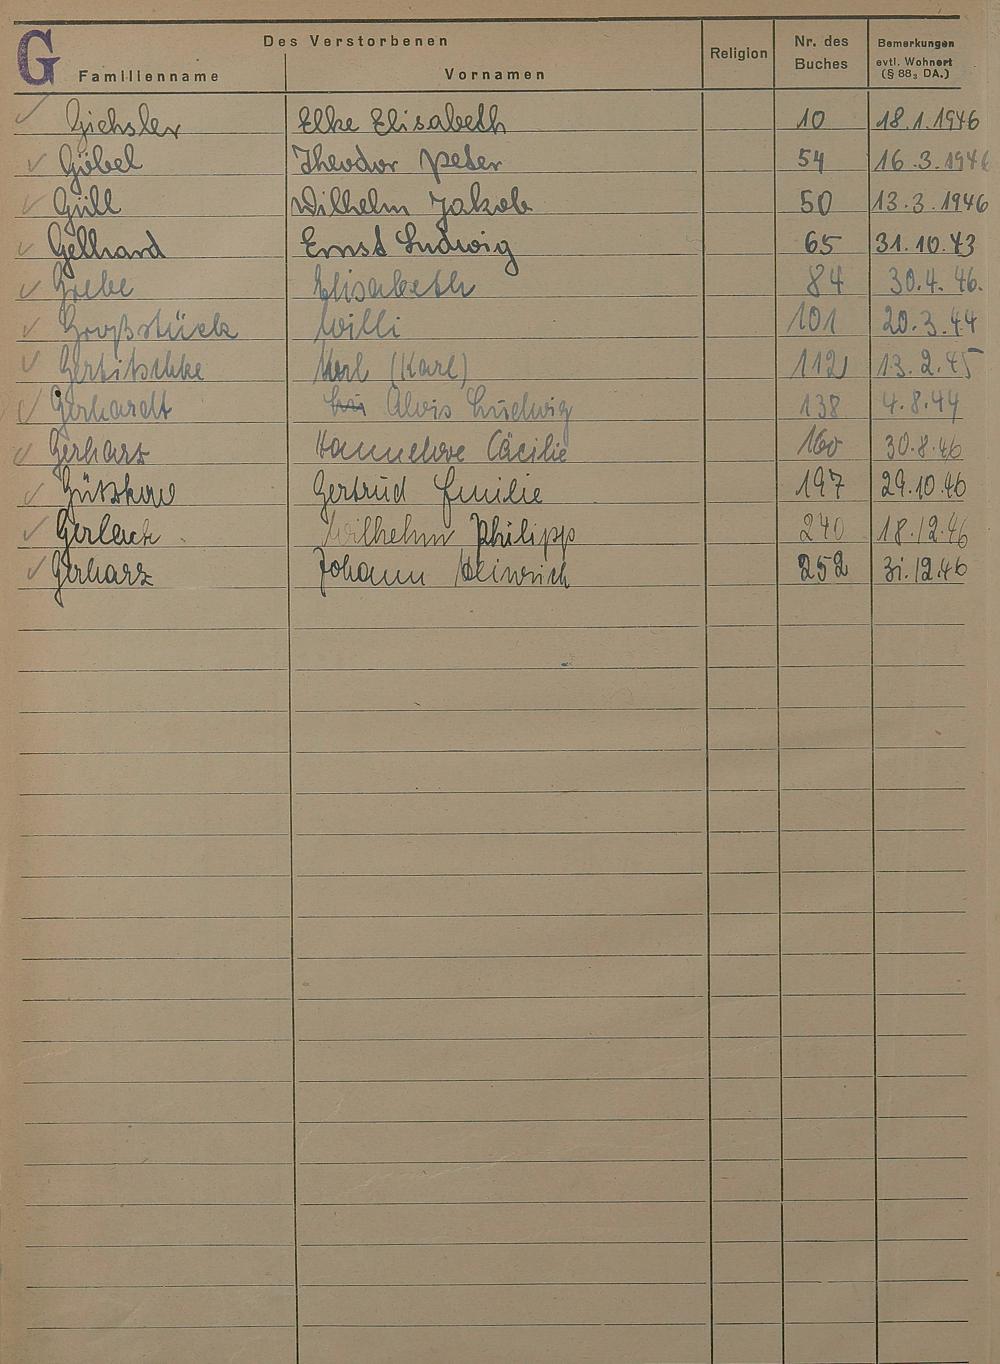 G
Des Verstorbenen
Familienname Vornamen Religion Nr. des Buches Bemerkungen evtl. Wohnort (§ 88₃ DA.)
Giehsler Elke Elisabeth 10 18.1.1946
Göbel Theodor Peter 54 16.3.1946
Güll Wilhelm Jakob 50 13.3.1946
Gelhard Ernst Ludwig 65 31.10.43
Grebe Elisabeth 84 30.4.46.
Großstück Willi 101 20.3.44
Gerbitschke Karl (Karl) 112 13.2.45
Gerhardt Alois Ludwig 138 4.8.44
Gerharz Hannelore Cäcilie 160 30.8.46
Gützkow Gertrud Emilie 197 29.10.46
Gerlach Wilhelm Philipp 240 18.12.46
Gerharz Johann Heinrich 252 31.12.46